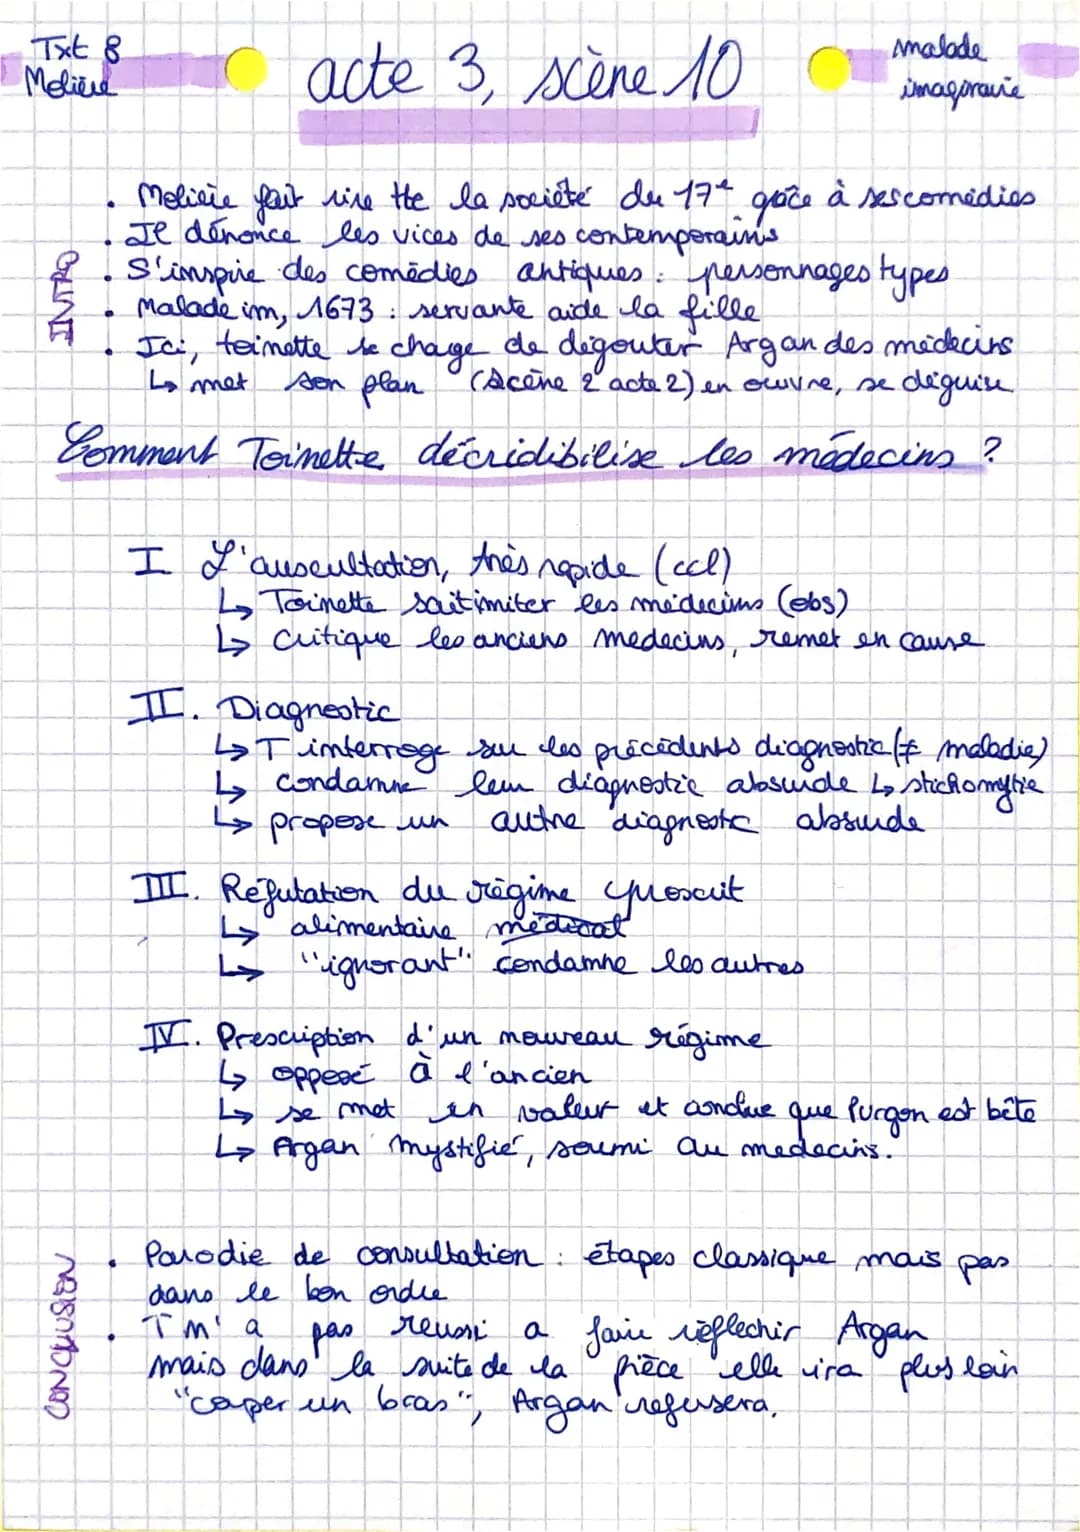 Txt 8
Molière
acte 3, scène 10
malade
imaginaire
INTRO
. Molière fait rire tte la société du 17e grâce à ses comédies
. Il dénonce les vices de ses contemporains
. S'inspire des comédies antiques : personnages types
. Malade im, 1673 : servante aide la fille
. Ici, toinette se chage de dégouter Argan des médecins
↳ met son plan (scène 2 acte 2) en œuvre, se déguise
Comment Toinette décridibilise les médecins ?
I L'auscultation, très rapide (ccl)
↳ Toinette sait imiter les médecins (obs)
↳ Critique les anciens medecins, remet en cause
II. Diagnostic
↳ T interroge sur les précédents diagnostic (≠ maladie)
↳ condamne leur diagnostic absurde ↳ stichomytie
↳ propose un autre diagnostc absurde
III. Réfutation du régime prescrit
↳ alimentaire médical
↳ "ignorant" : condamne les autres
IV. Prescription d'un nouveau régime
↳ opposé à l'ancien
↳ se met en valeur et conclue que Purgon est bête
↳ Argan mystifié, soumi au medecins.
CONCLUSION
. Parodie de consultation : étapes classique mais pas
dans le bon ordre
. T m'a pas reussi a faire réflechir Argan
mais dans la suite de la pièce elle ira plus loin
"couper un bras", Argan refusera.